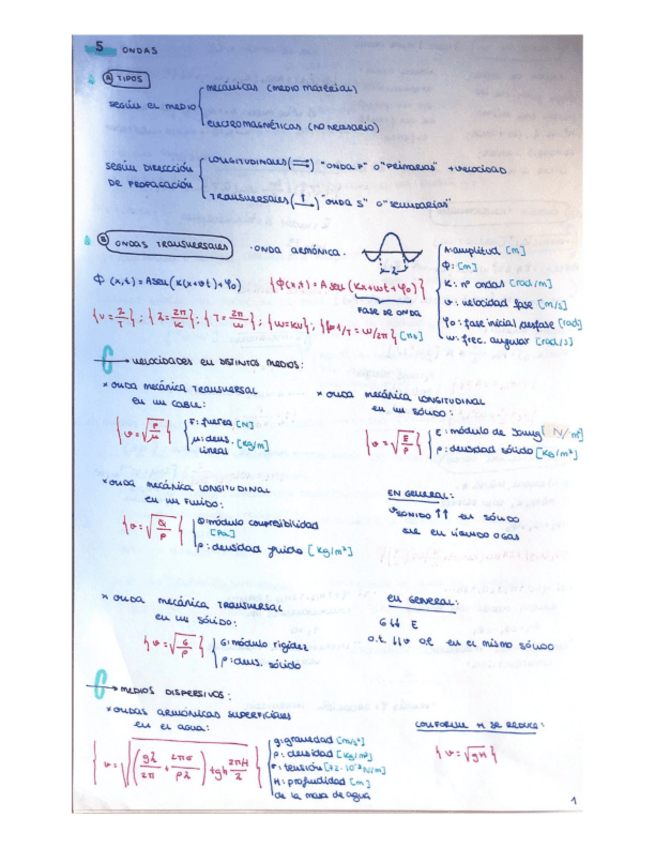 5 ONDAS
A TIPOS
SEGÚN EL MEDIO
mecánicas (medio material)
electromagnéticas (no necesario)
SEGÚN DIRECCIÓN DE PROPAGACIÓN
LONGITUDINALES (⇒) "ONDA P" O "PRIMARIAS" +velocidad
TRANSVERSALES (↑) "ONDA S" O "SECUNDARIAS"
B ONDAS TRANSVERSALES · ONDA ARMÓNICA.
amplitud [m]
ϕ: [m]
K: nº ondas [rad/m]
v: velocidad fase [m/s]
φ₀: fase inicial desfase [rad]
w: frec. angular [rad/s]
ϕ(x,t) = A sen (K(x+vt)+φ₀) {ϕ(x,t) = A sen (Kx+wt+φ₀)}
FASE DE ONDA
{v = λ/T}; {λ = 2π/K}; {T = 2π/w}; {w = Kv}; 1/T = w/2π}
→ VELOCIDADES EN DISTINTOS MEDIOS:
× ONDA MECÁNICA TRANSVERSAL
EN UN CABLE:
{v = √F/μ}
F: fuerza [N]
μ: dens. lineal [kg/m]
× ONDA MECÁNICA LONGITUDINAL
EN UN SÓLIDO:
{v = √E/ρ}
E: módulo de Young [N/m²]
ρ: densidad sólido [kg/m³]
× ONDA MECÁNICA LONGITUDINAL
EN UN FLUIDO:
ρ: densidad fluido [kg/m³]
módulo compresibilidad
[Pa]
EN GENERAL:
v SONIDO ↑↑ en SÓLIDO
que en líquido o gas
× ONDA MECÁNICA TRANSVERSAL
EN UN SÓLIDO:
{v = √G/ρ}
G: módulo rigidez
ρ: dens. sólido
EN GENERAL:
G ↓↓ E
O.T. ↓↓ v O.L en el mismo SÓLIDO
→ MEDIOS DISPERSIVOS:
× ONDAS ARMÓNICAS SUPERFICIALES
EN EL AGUA:
{v = √(gλ/2π + 2πσ/ρλ) tgh 2πH/λ}
g: gravedad [m/s²]
ρ: densidad [kg/m³]
σ: tensión [72·10⁻³ N/m]
H: profundidad [m]
de la masa de agua
CONFORME H SE REDUCE:
{v = √gH}
1